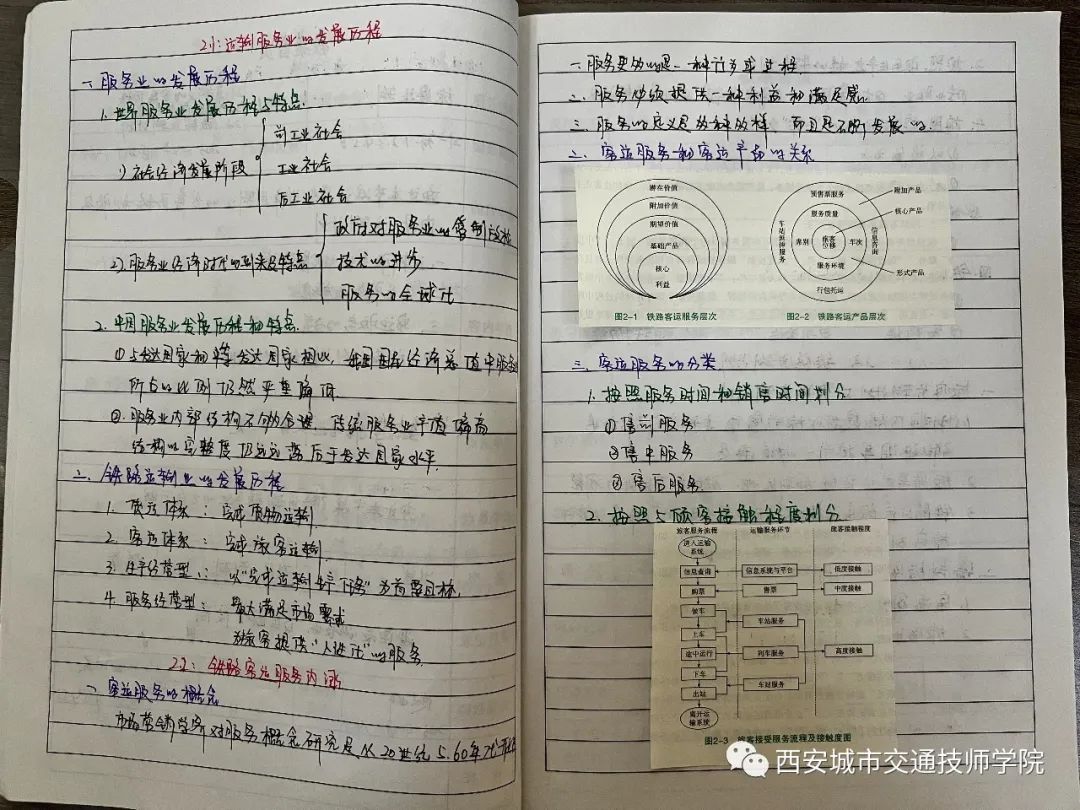 2.1：运输服务业的发展历程
一、服务业的发展历程
1. 世界服务业发展历程与特点.
前工业社会
1) 社会经济发展阶段
工业社会
后工业社会
政府对服务业的管制放松
2). 服务业经济时代的到来及特点
技术的进步
服务的全球化
2. 中国服务业发展历程和特点.
①与发达国家和 发达国家相比，我国国民经济总值中服务业
所占的比例仍然严重偏低.
②服务业内部结构不够合理，传统服务业产值偏高
结构的完整度仍远远落后于发达国家水平.
二、铁路运输业的发展历程
1. 货运体系：完成货物运输.
2. 客运体系：完成旅客运输.
3. 生产经营型：以“完成运输生产任务”为首要目标.
4. 服务经营型：最大满足市场需求
为旅客提供“人性化”的服务.
2.2：铁路客运服务内涵
一、客运服务的概念
市场营销学界对服务概念研究是从20世纪5.60年代开始
一. 服务更多的是一种行为或过程.
二. 服务必须提供一种利益和满足感.
三. 服务的定义是多种多样，而且是不断发展的.
二、客运服务和客运产品的关系
潜在价值
附加价值
期望价值
基础产品
核心
利益
图2-1 铁路客运服务层次
预售票服务
服务质量
车站延伸服务
席别
旅客位移
车次
信息咨询
服务环境
行包托运
附加产品
核心产品
形式产品
图2-2 铁路客运产品层次
三、客运服务的分类
1. 按照服务时间和销售时间划分
①售前服务
②售中服务
③售后服务
2. 按照与顾客接触程度划分
旅客服务流程 运输服务环节 旅客接触程度
进入运输系统
信息查询 信息系统与平台 低度接触
购票 售票 中度接触
候车
车站服务
上车
途中运行 列车服务 高度接触
下车
车站服务
出站
离开运输系统
图2-3 旅客接受服务流程及接触度图
西安城市交通技师学院